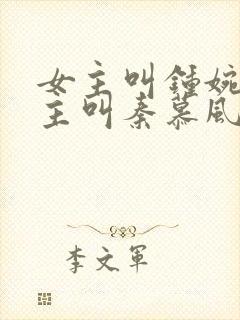 女主叫鍾婉
主叫秦慕風
李文軍